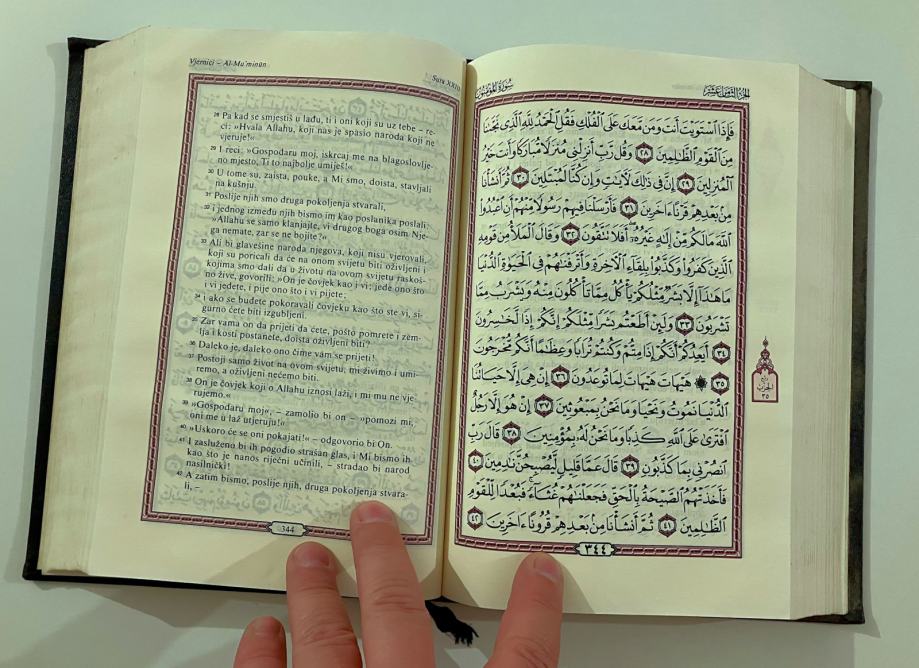 Vjernici – Al-Mu'minūn
Sura XXIII
28 Pa kad se smjestiš u lađu, ti i oni koji su uz tebe – re-
ci: »Hvala Allahu, koji nas je spasio naroda koji ne
vjeruje!«
29 I reci: »Gospodaru moj, iskrcaj me na blagoslovlje-
no mjesto, Ti to najbolje umiješ!«
30 U tome su, zaista, pouke, a Mi smo, doista, stavljali
na kušnju.
31 Poslije njih smo druga pokoljenja stvarali,
32 i jednog između njih bismo im kao poslanika poslali:
»Allahu se samo klanjajte, vi drugog boga osim Nje-
ga nemate, zar se ne bojite?«
33 Ali bi glavešine naroda njegova, koji nisu vjerovali,
koji su poricali da će na onom svijetu biti oživljeni i
kojima smo dali da u životu na ovom svijetu raskoš-
no žive, govorili: »On je čovjek kao i vi; jede ono što
i vi jedete, i pije ono što i vi pijete;
34 i ako se budete pokoravali čovjeku kao što ste vi, si-
gurno ćete biti izgubljeni.
35 Zar vama on da prijeti da ćete, pošto pomrete i zem-
lja i kosti postanete, doista oživljeni biti?
36 Daleko je, daleko ono čime vam se prijeti!
37 Postoji samo život na ovom svijetu, mi živimo i umi-
remo, a oživljeni nećemo biti.
38 On je čovjek koji o Allahu iznosi laži, i mi mu ne vje-
rujemo.«
39 »Gospodaru moj«, – zamolio bi on – »pomozi mi,
oni me u laž utjeruju!«
40 »Uskoro će se oni pokajati!« – odgovorio bi On.
41 I zasluženo bi ih pogodio strašan glas, i Mi bismo ih
kao što je nanos riječni učinili, – stradao bi narod
nasilnički!
42 A zatim bismo, poslije njih, druga pokoljenja stvara-
li, –
344
سُورَةُ المُؤْمِنُونَ
الجُزْءُ الثَّامِنَ عَشَرَ
فَإِذَا ٱسْتَوَيْتَ أَنتَ وَمَن مَّعَكَ عَلَى ٱلْفُلْكِ فَقُلِ ٱلْحَمْدُ لِلَّهِ ٱلَّذِى نَجَّىٰنَا
مِنَ ٱلْقَوْمِ ٱلظَّٰلِمِينَ ٢٨ وَقُل رَّبِّ أَنزِلْنِى مُنزَلًا مُّبَارَكًا وَأَنتَ خَيْرُ
ٱلْمُنزِلِينَ ٢٩ إِنَّ فِى ذَٰلِكَ لَءَايَٰتٍ وَإِن كُنَّا لَمُبْتَلِينَ ٣٠ ثُمَّ أَنشَأْنَا
مِنۢ بَعْدِهِمْ قَرْنًا ءَاخَرِينَ ٣١ فَأَرْسَلْنَا فِيهِمْ رَسُولًا مِّنْهُمْ أَنِ ٱعْبُدُوا۟
ٱللَّهَ مَا لَكُم مِّنْ إِلَٰهٍ غَيْرُهُۥٓ أَفَلَا تَتَّقُونَ ٣٢ وَقَالَ ٱلْمَلَأُ مِن قَوْمِهِ
ٱلَّذِينَ كَفَرُوا۟ وَكَذَّبُوا۟ بِلِقَآءِ ٱلْءَاخِرَةِ وَأَتْرَفْنَٰهُمْ فِى ٱلْحَيَوٰةِ ٱلدُّنْيَا
مَا هَٰذَآ إِلَّا بَشَرٌ مِّثْلُكُمْ يَأْكُلُ مِمَّا تَأْكُلُونَ مِنْهُ وَيَشْرَبُ مِمَّا
تَشْرَبُونَ ٣٣ وَلَئِنْ أَطَعْتُم بَشَرًا مِّثْلَكُمْ إِنَّكُمْ إِذًا لَّخَٰسِرُونَ
٣٤ أَيَعِدُكُمْ أَنَّكُمْ إِذَا مِتُّمْ وَكُنتُمْ تُرَابًا وَعِظَٰمًا أَنَّكُم مُّخْرَجُونَ
٣٥ ۞ هَيْهَاتَ هَيْهَاتَ لِمَا تُوعَدُونَ ٣٦ إِنْ هِىَ إِلَّا حَيَاتُنَا
ٱلدُّنْيَا نَمُوتُ وَنَحْيَا وَمَا نَحْنُ بِمَبْعُوثِينَ ٣٧ إِنْ هُوَ إِلَّا رَجُلٌ
ٱفْتَرَىٰ عَلَى ٱللَّهِ كَذِبًا وَمَا نَحْنُ لَهُۥ بِمُؤْمِنِينَ ٣٨ قَالَ رَبِّ
ٱنصُرْنِى بِمَا كَذَّبُونِ ٣٩ قَالَ عَمَّا قَلِيلٍ لَّيُصْبِحُنَّ نَٰدِمِينَ ٤٠
فَأَخَذَتْهُمُ ٱلصَّيْحَةُ بِٱلْحَقِّ فَجَعَلْنَٰهُمْ غُثَآءً فَبُعْدًا لِّلْقَوْمِ
ٱلظَّٰلِمِينَ ٤١ ثُمَّ أَنشَأْنَا مِنۢ بَعْدِهِمْ قُرُونًا ءَاخَرِينَ ٤٢
ربع
الحزب
٣٥
٣٤٤